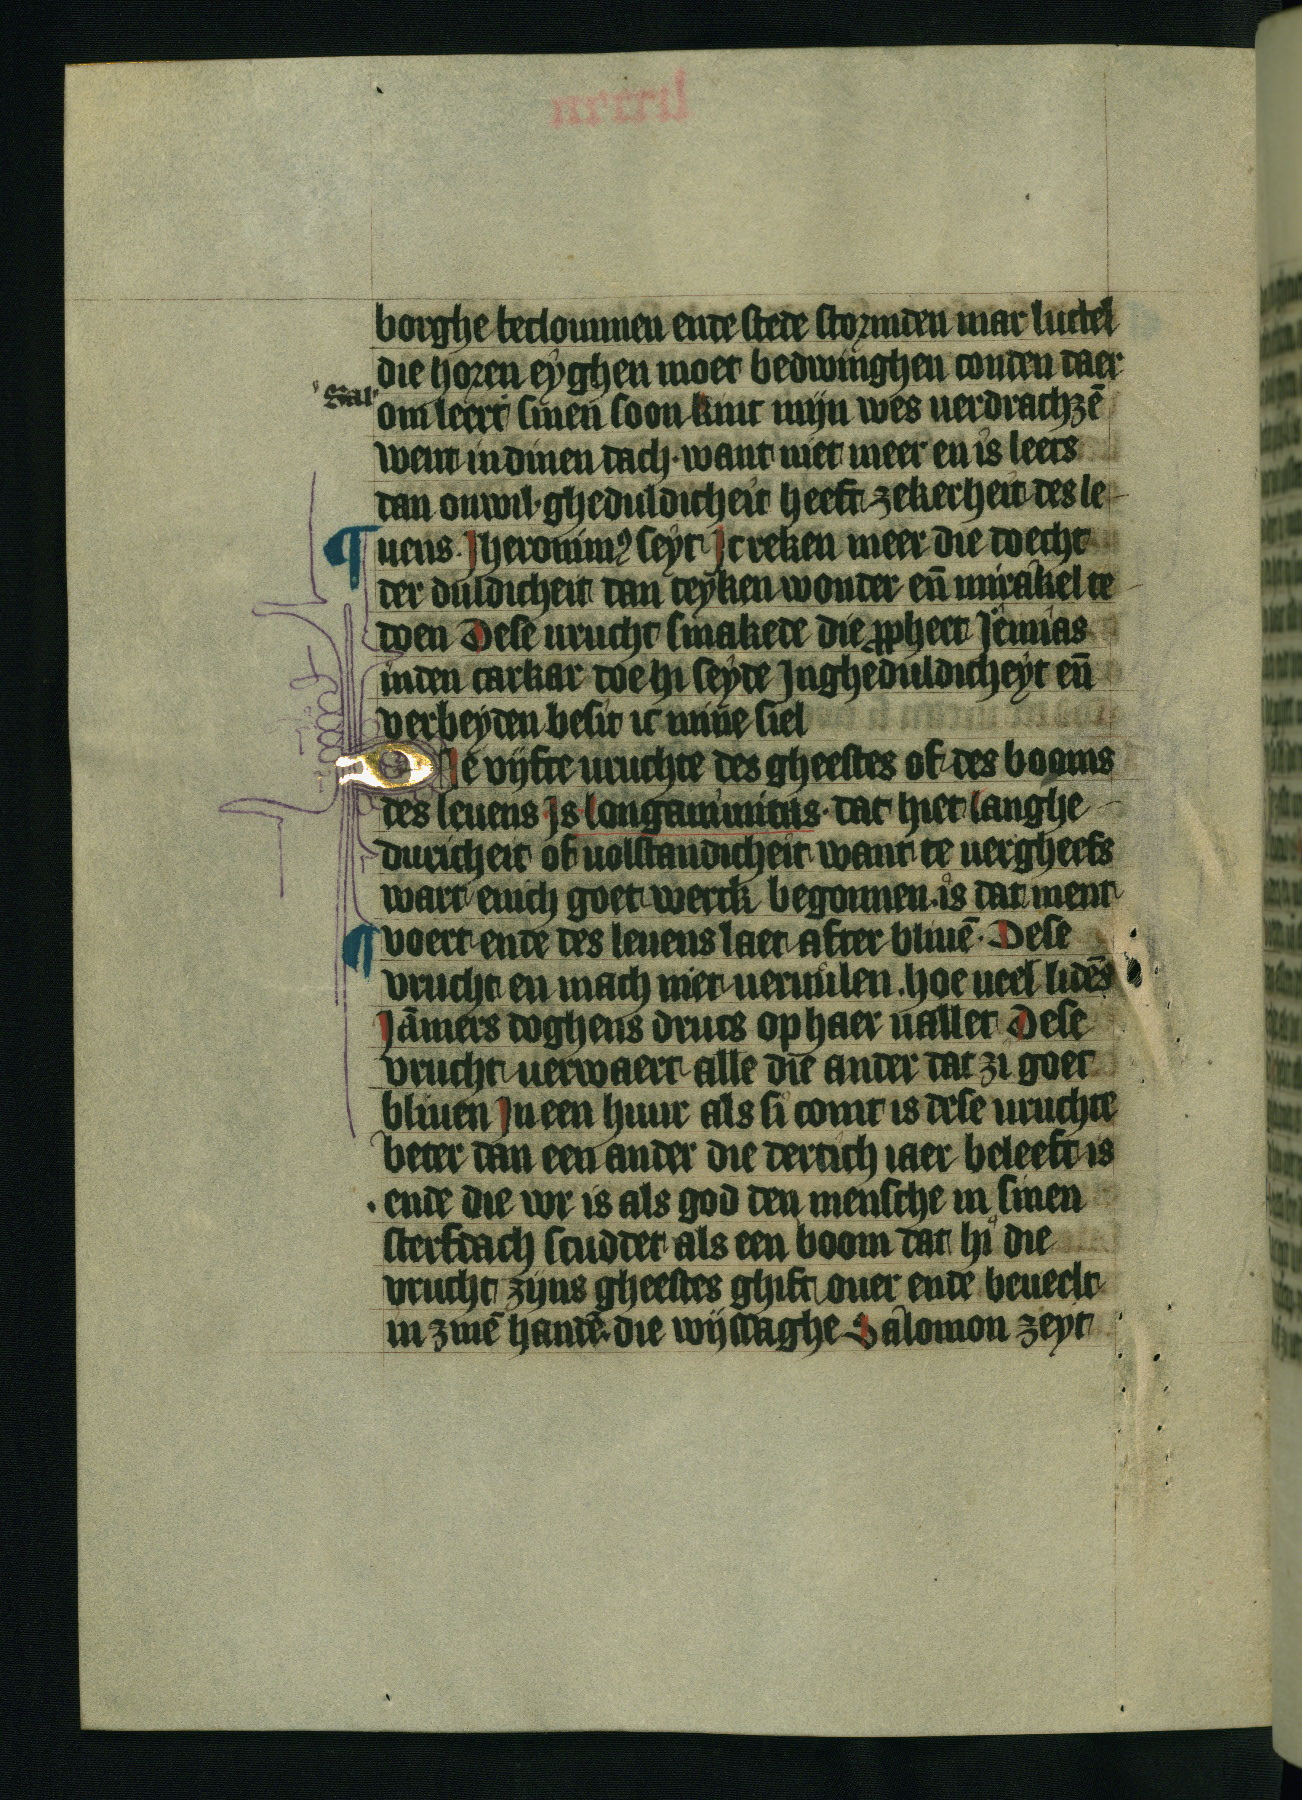 borghe beclommen ende stede stormden mar luttel
die horen eyghen moet bedwinghen conden daer
Sal
om leert sinen soon kint mijn wes verdrachzē
went in dinen dach. want niet meer en is leets
dan onwil. gheduldicheit heeft zekerheit des le
uens. Jheronimꝰ seyt Jc reken meer die doecht
der duldicheit dan teyken wonder eñ mirakel te
doen Dese urucht smakede die ꝓpheet Jēmias
inden carkar doe hi seyde Jn gheduldicheyt eñ
verbeyden besit ic mine siel
Die vijfte uruchte des gheestes of des booms
des leuens Js longanimitas. dat hiet langhe
duricheit of uolstandicheit want te uergheefs
wart enich goet werck begonnen. is dat ment
voert ende des leuens laet after bliuē. Dese
vrucht en mach niet veruulen. hoe ueel lidēs
Jāmers doghens drucs op haer uallet Dese
vrucht uerwaert alle die ander dat zi goet
bliuen Jn een huur als si comt is dese uruchte
beter dan een ander die dertich iaer beleeft is
ende die vr is als god den mensche in sinen
sterfdach scuddet als een boom dat hi die
vrucht zijns gheestes ghift ouer ende beuelt
in zinē handē. die wijssaghe Salomon zeyt